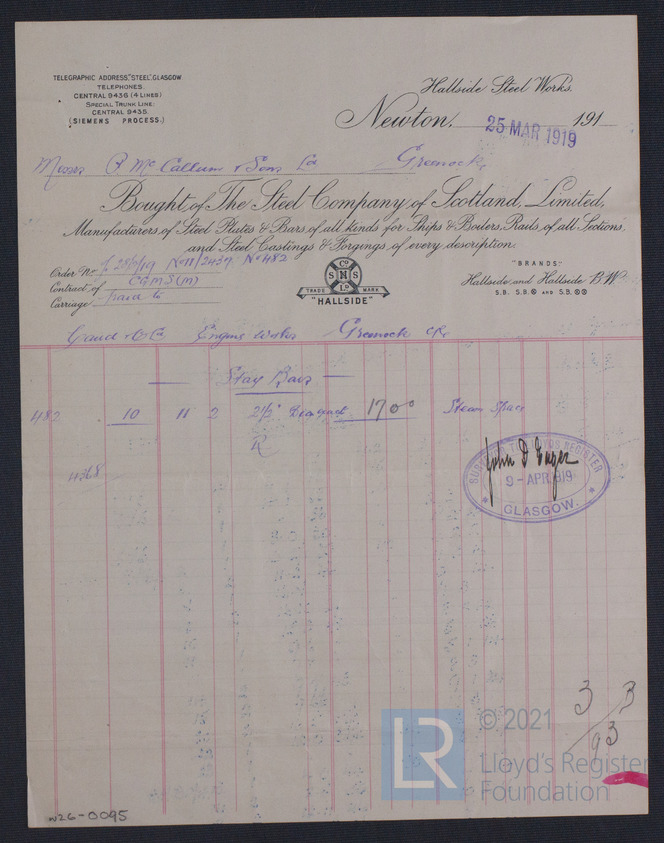 TELEGRAPHIC ADDRESS, "STEEL", GLASGOW.
TELEPHONES.
CENTRAL 9436 (4 LINES)
SPECIAL TRUNK LINE:
CENTRAL 9435.
(SIEMENS PROCESS.)
Hallside Steel Works.
Newton, 25 MAR 1919 191
Messrs P. McCallum & Sons Ld Greenock
Bought of The Steel Company of Scotland, Limited,
Manufacturers of Steel Plates & Bars of all kinds for Ships & Boilers, Rails of all Sections,
and Steel Castings & Forgings of every description.
Order No. No 482
Contract of CGMS(M)
Carriage paid to
S Co N S M S Ld
TRADE MARK
"HALLSIDE"
"BRANDS:"
Hallside and Hallside B.W.
S.B. S.B. AND S.B.
Engine Works Greenock
Stay Bars
482 10 11 2 2½" 1700 Steam Space
R
4268
SURVEYOR TO LLOYDS REGISTER
9 - APR 1919
GLASGOW.
3 / 3
93
LR
© 2021
Lloyd's Register
Foundation
W26-0095